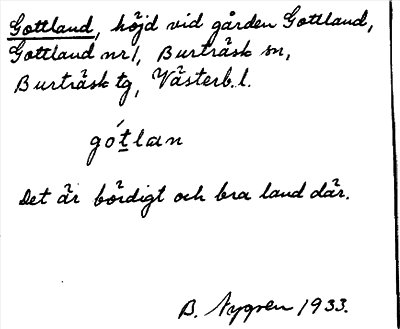 Gottland, höjd vid gården Gottland,
Gottland nr 1, Burträsk sn,
Burträsk tg, Västerb. l.
gótlan
Det är bördigt och bra land där.
B. Nygren 1933.